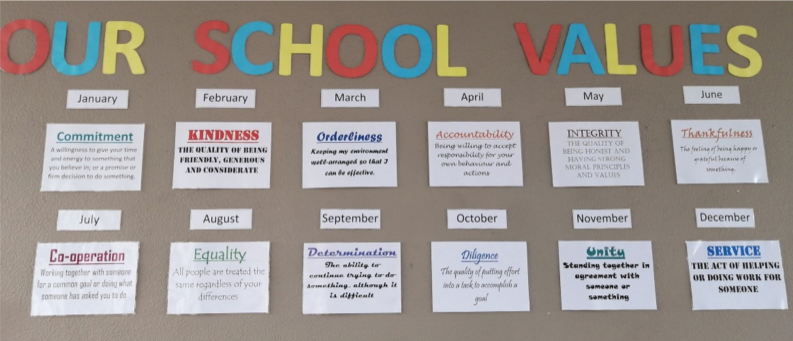 OUR SCHOOL VALUES
January
Commitment
A willingness to give your time
and energy to something that
you believe in, or a promise or
firm decision to do something.
February
KINDNESS
THE QUALITY OF BEING
FRIENDLY, GENEROUS
AND CONSIDERATE
March
Orderliness
Keeping my environment
well-arranged so that I
can be effective.
April
Accountability
Being willing to accept
responsibility for your
own behaviour and
actions
May
INTEGRITY
THE QUALITY OF
BEING HONEST AND
HAVING STRONG
MORAL PRINCIPLES
AND VALUES
June
Thankfulness
The feeling of being happy or
grateful because of
something.
July
Co-operation
Working together with someone
for a common goal or doing what
someone has asked you to do
August
Equality
All people are treated the
same regardless of your
differences
September
Determination
The ability to
continue trying to do
something, although it
is difficult
October
Diligence
The quality of putting effort
into a task to accomplish a
goal
November
Unity
Standing together in
agreement with
someone or
something
December
SERVICE
THE ACT OF HELPING
OR DOING WORK FOR
SOMEONE